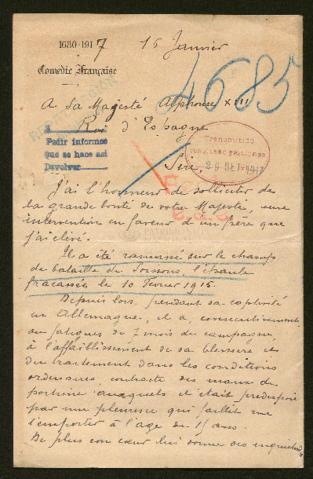 1680-1917 15 Janvier
Comédie Française
4685
A Sa Majesté Alphonse XIII
Roi d'Espagne
Pedir informes
que se hace así
Devolver
Sire,
J'ai l'honneur de solliciter de
la grande bonté de votre Majesté, une
intervention en faveur d'un frère que
j'ai élevé.
Il a été ramassé sur le champ
de bataille de Soissons, l'épaule
fracassée le 10 février 1915
Depuis lors, pendant sa captivité
en Allemagne, il a consécutivement
aux fatigues de 7 mois de campagne,
à l'affaiblissement de sa blessure et
du traitement dans les conditions
contracté des maux de
poitrine auxquels il était prédisposé
par une pleurésie qui faillit me
l'emporter à l'age de 15 ans.
De plus son cœur lui donne des